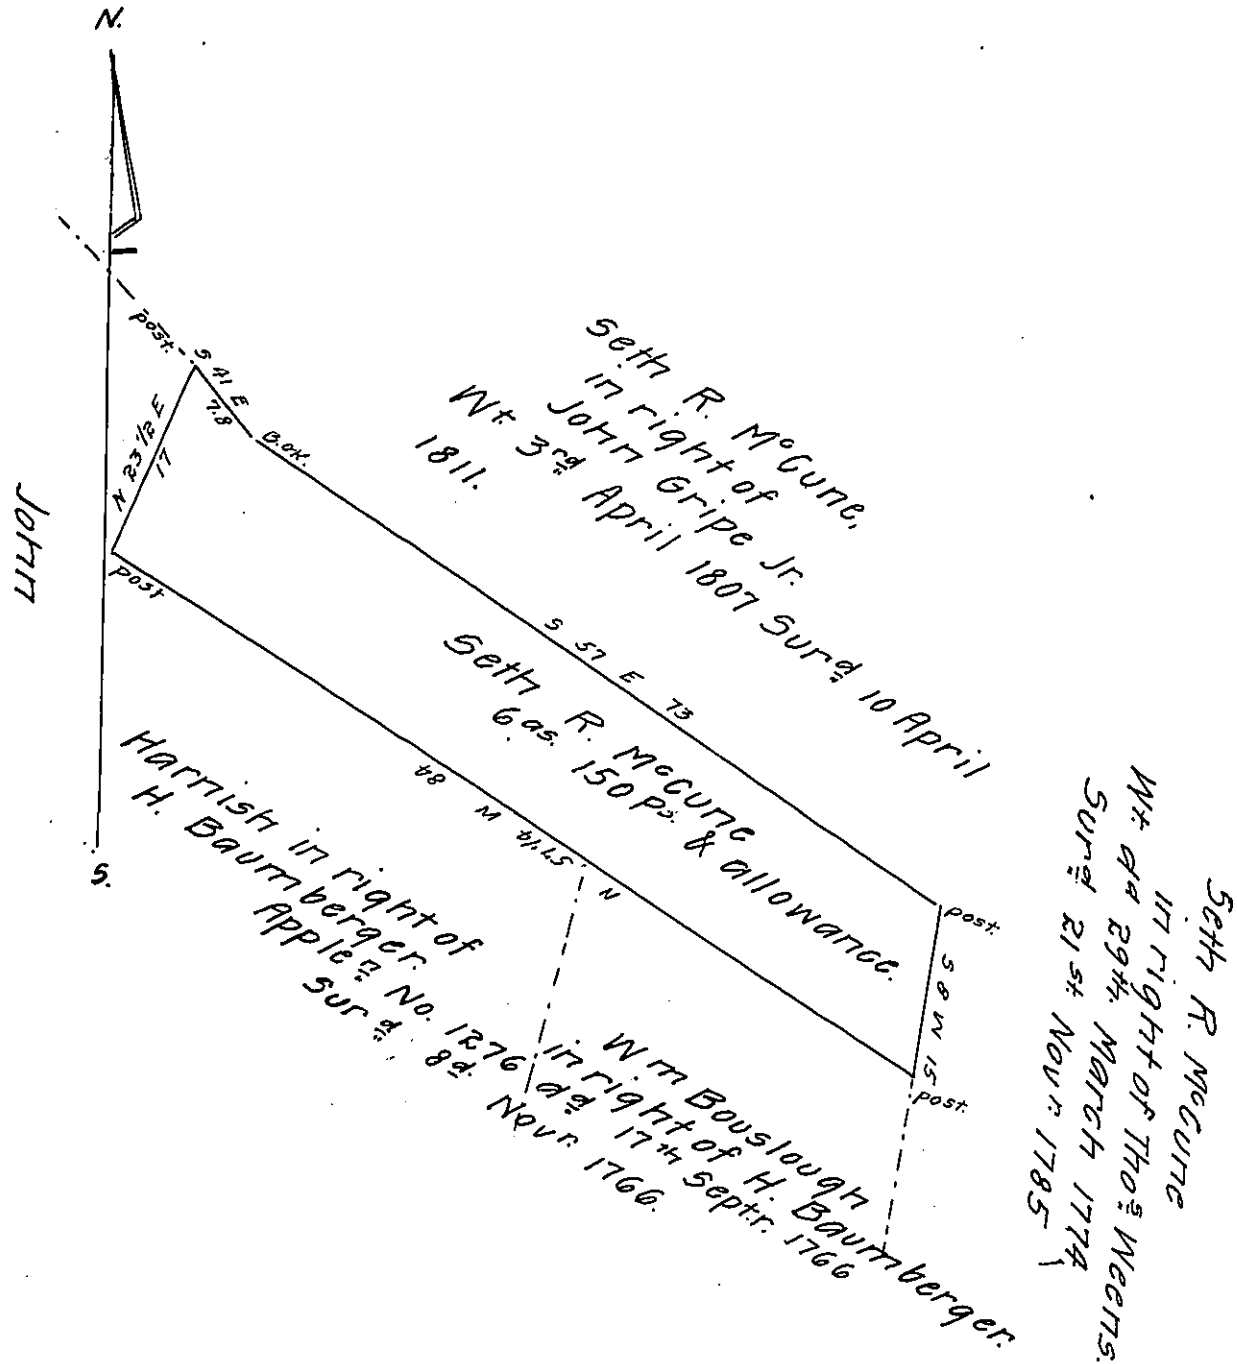 N.
post.
S 41 E
7.8
B.oK.
N 23 1/2 E
17
post
John
Seth R. McCune,
in right of
John Gripe Jr.
Wt. 3rd April 1807 Surd 10 April
1811.
S 57 E 73
Seth R. McCune
6 as. 150 ps. & allowance.
N 57 1/4 W 84
post.
S 8 W 15
post.
S.
Harnish in right of
H. Baumberger.
Applen No. 1276 dd 17th Septr. 1766
Surd 8d. Novr. 1766.
Wm Bouslough
in right of H. Baumberger.
Seth R. McCune
in right of Thos Weems.
Wt dd 29th. March 1774
Surd 21st Novr. 1785